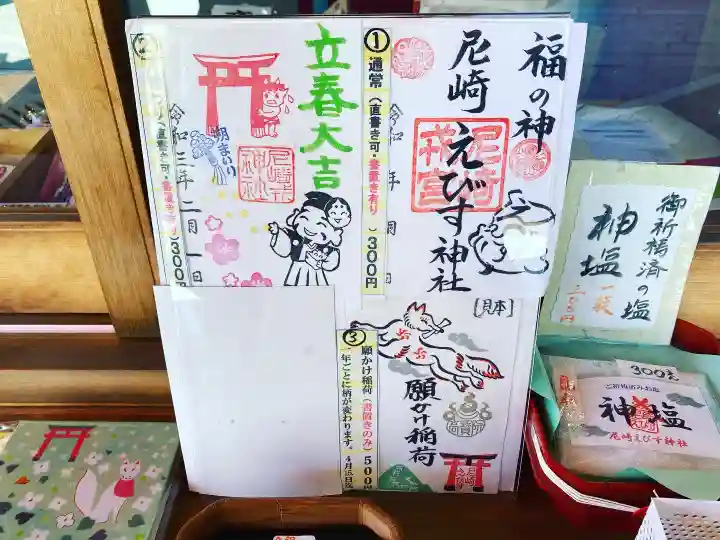 ①通常（直書き可・書置き有り）300円
福の神
尼崎えびす神社
尼崎
戎宮
立春大吉
朔まいり
令和三年二月一日
（直書き可・書置き有り）300円
【見本】
③願かけ稲荷（書置きのみ）500円
一年ごとに柄が変わります。
願かけ稲荷
御祈祷済の塩
神塩
一袋
300円
神塩
尼崎えびす神社